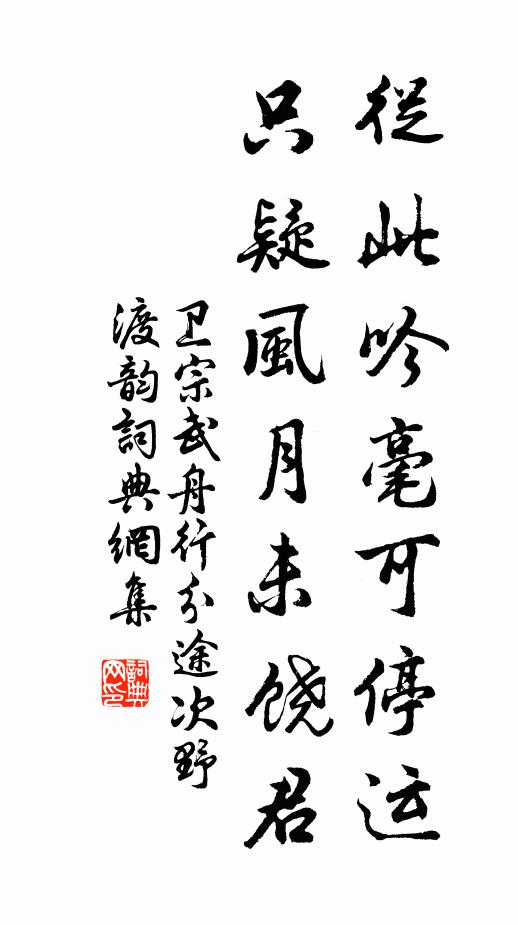 從此吟毫可停运
只疑風月未饶君
卫宗武舟行分途次野
渡韵詞典網集
詞典
网印